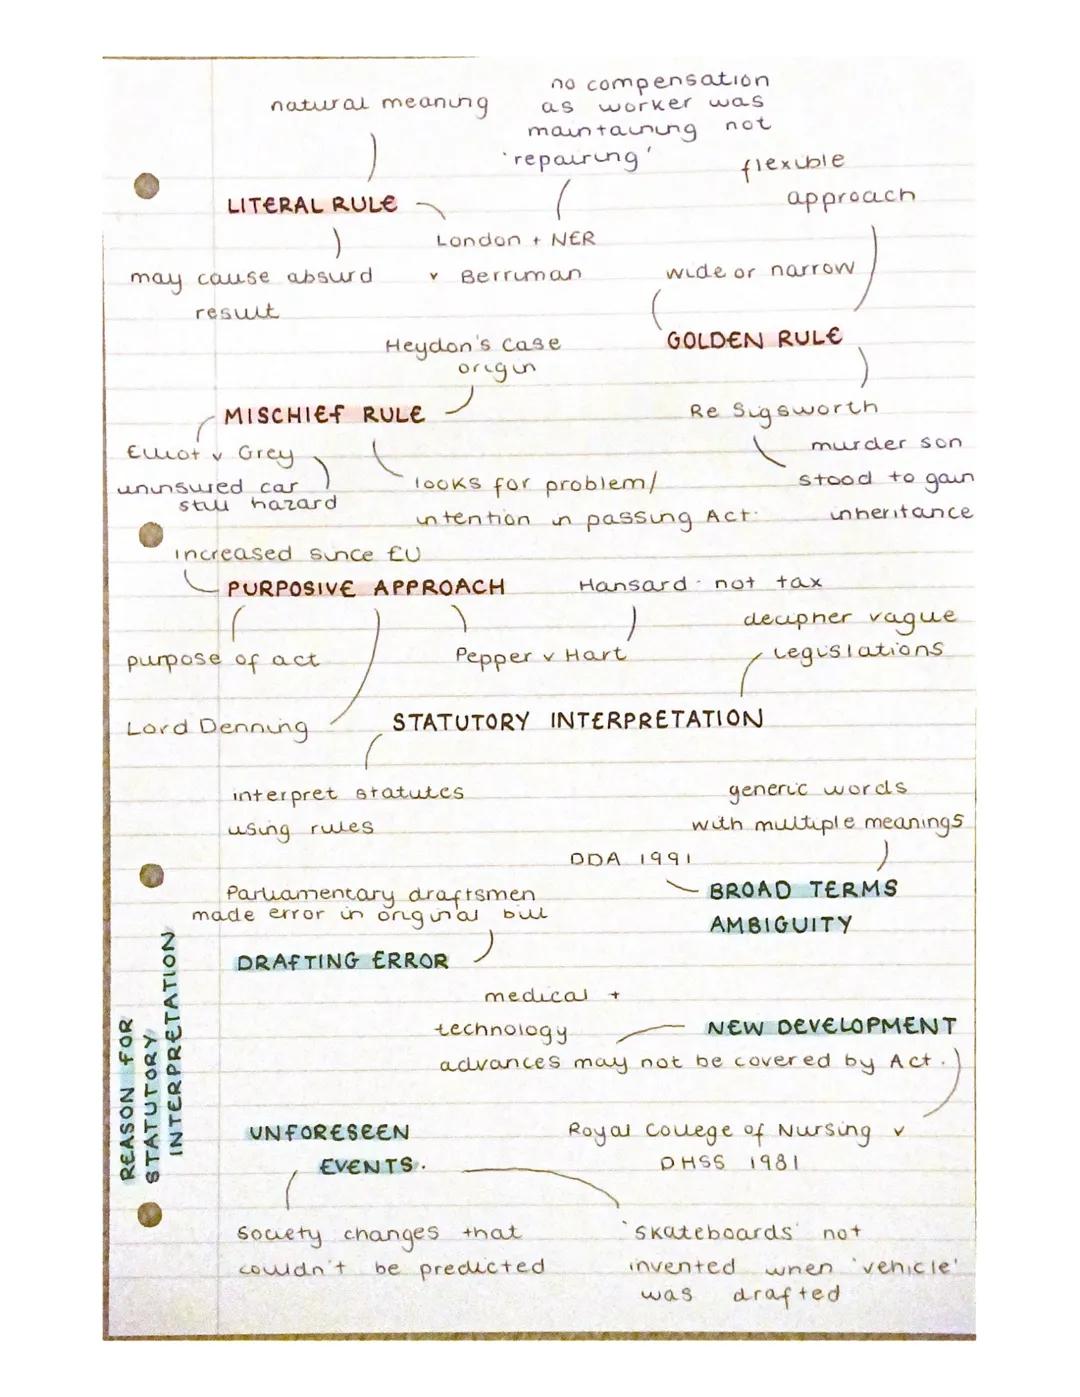 natural meaning
no compensation
as worker was
maintaining not
'repairing'
flexible
approach
LITERAL RULE
London + NER
v Berriman
may cause absurd
result
wide or narrow
GOLDEN RULE
Heydon's case
origin
MISCHIEF RULE
Re Sigsworth
murder son
stood to gain
inheritance
Elliot v Grey
uninsured car
still hazard
looks for problem/
intention in passing Act.
increased since EU
PURPOSIVE APPROACH
Hansard not tax
purpose of act
Pepper v Hart
Lord Denning
decipher vague
legislations
STATUTORY INTERPRETATION
interpret statutes
using rules
generic words
with multiple meanings
DDA 1991
BROAD TERMS
AMBIGUITY
Parliamentary draftsmen
made error in original bill
DRAFTING ERROR
REASON FOR
STATUTORY
INTERPRETATION
medical +
technology
advances may not be covered by Act.
NEW DEVELOPMENT
Royal College of Nursing v
DHSS 1981
UNFORESEEN
EVENTS.
Society changes that
couldn't be predicted
'Skateboards' not
invented when 'vehicle'
was drafted